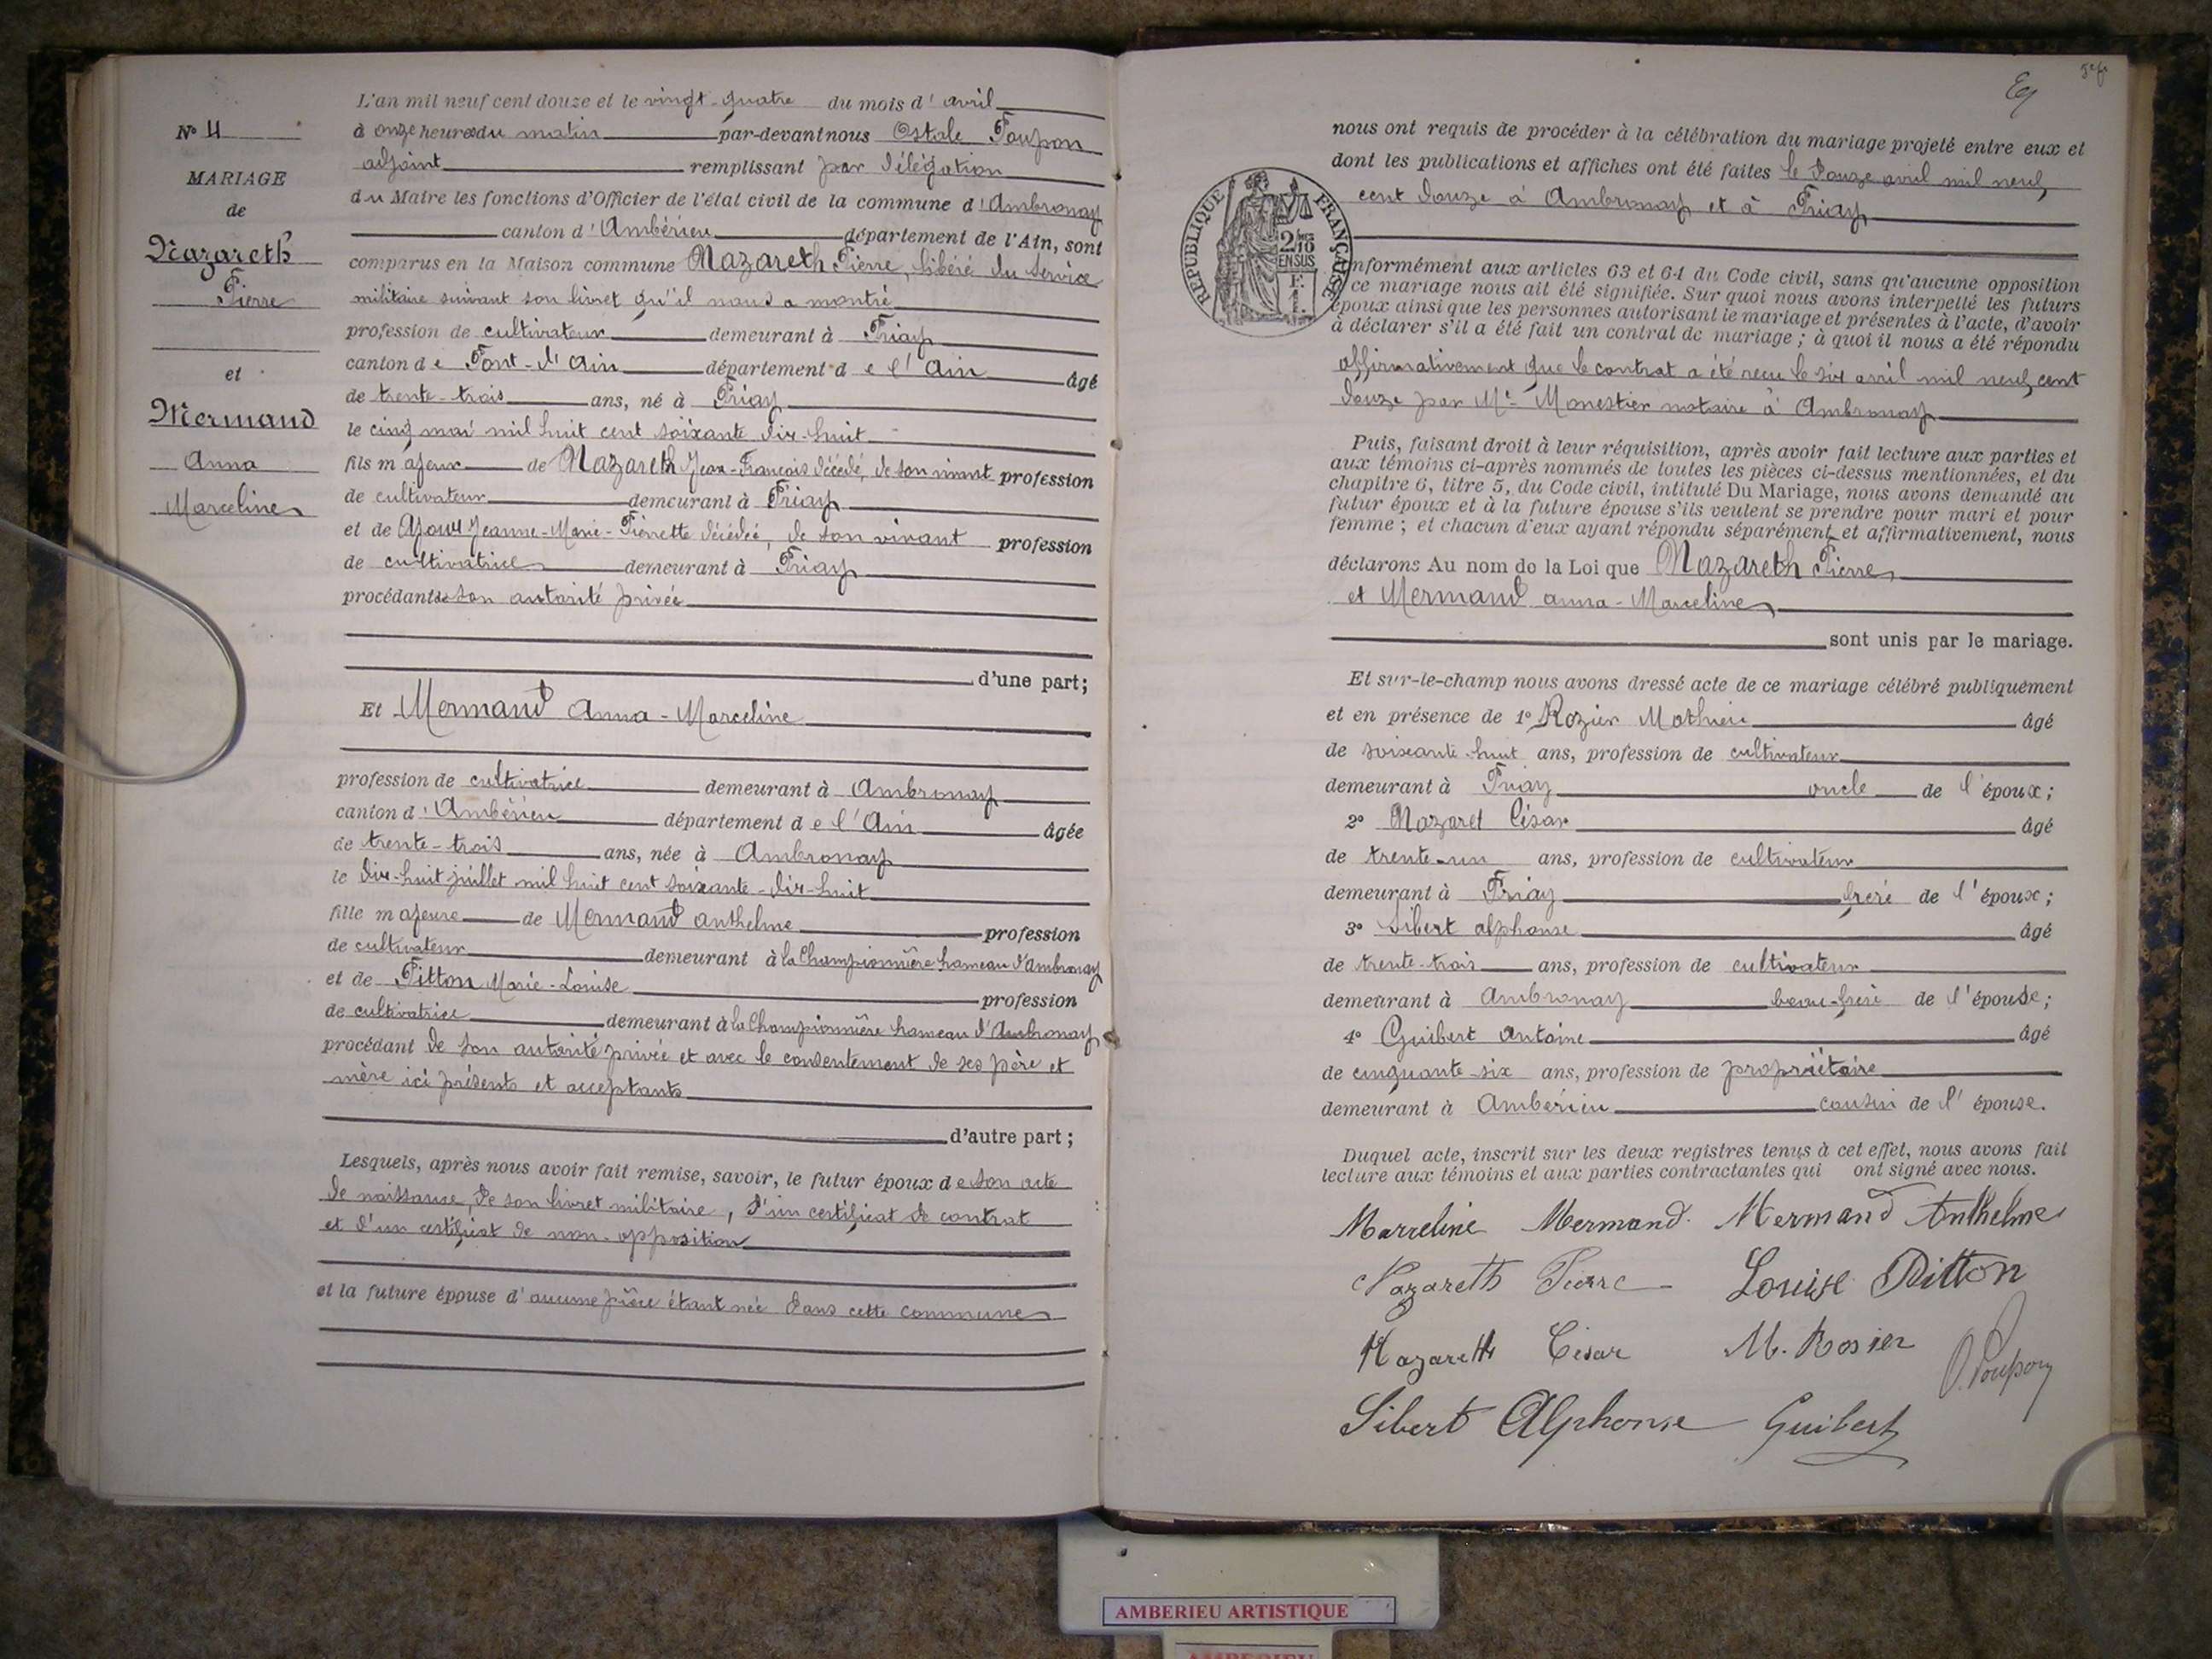 N° 4
MARIAGE
de
Nazareth
Pierre
et
Mermand
Anna
Marceline
L'an mil neuf cent douze et le vingt-quatre du mois d'avril
à onze heures du matin par-devant nous Ostale Poupon
adjoint remplissant par délégation
du Maire les fonctions d'Officier de l'état civil de la commune d'Ambronay
canton d'Ambérieu département de l'Ain, sont
comparus en la Maison commune Nazareth Pierre, libéré du service
militaire suivant son livret qu'il nous a montré
profession de cultivateur demeurant à Priay
canton de Pont-d'Ain département de l'Ain âgé
de trente-trois ans, né à Priay
le cinq mai mil huit cent soixante dix-huit
fils majeur de Nazareth Jean-François décédé, de son vivant profession
de cultivateur demeurant à Priay
et de Jeanne-Marie-Pierrette décédée, de son vivant profession
de cultivatrice demeurant à Priay
procédant de son autorité privée
d'une part;
Et Mermand Anna-Marceline
profession de cultivatrice demeurant à Ambronay
canton d'Ambérieu département de l'Ain âgée
de trente-trois ans, née à Ambronay
le dix-huit juillet mil huit cent soixante-dix-huit
fille majeure de Mermand anthelme profession
de cultivateur demeurant à la Championnière hameau d'Ambronay
et de Pitton Marie-Louise profession
de cultivatrice demeurant à la Championnière hameau d'Ambronay
procédant de son autorité privée et avec le consentement de ses père et
mère ici présents et acceptants
d'autre part;
Lesquels, après nous avoir fait remise, savoir, le futur époux de son acte
de naissance, de son livret militaire, d'un certificat de contrat
et d'un certificat de non-opposition
et la future épouse d'aucune pièce étant née dans cette commune
nous ont requis de procéder à la célébration du mariage projeté entre eux et
dont les publications et affiches ont été faites le douze avril mil neuf
cent douze à Ambronay et à Priay
REPUBLIQUE FRANÇAISE
2/10
EN SUS
F.
1
nformément aux articles 63 et 64 du Code civil, sans qu'aucune opposition
ce mariage nous ait été signifiée. Sur quoi nous avons interpellé les futurs
époux ainsi que les personnes autorisant le mariage et présentes à l'acte, d'avoir
à déclarer s'il a été fait un contrat de mariage; à quoi il nous a été répondu
affirmativement que le contrat a été reçu le six avril mil neuf cent
douze par Me Monestier notaire à Ambronay
Puis, faisant droit à leur réquisition, après avoir fait lecture aux parties et
aux témoins ci-après nommés de toutes les pièces ci-dessus mentionnées, et du
chapitre 6, titre 5, du Code civil, intitulé Du Mariage, nous avons demandé au
futur époux et à la future épouse s'ils veulent se prendre pour mari et pour
femme; et chacun d'eux ayant répondu séparément et affirmativement, nous
déclarons Au nom de la Loi que Nazareth Pierre
et Mermand anna-Marceline
sont unis par le mariage.
Et sur-le-champ nous avons dressé acte de ce mariage célébré publiquement
et en présence de 1° Rozier Mathieu âgé
de soixante-huit ans, profession de cultivateur
demeurant à Priay oncle de l'époux;
2° Nazaret César âgé
de trente-un ans, profession de cultivateur
demeurant à Priay frère de l'époux;
3° Sibert alphonse âgé
de trente-trois ans, profession de cultivateur
demeurant à Ambronay beau-frère de l'épouse;
4° Guibert Antoine âgé
de cinquante-six ans, profession de propriétaire
demeurant à Ambérieu cousin de l'épouse.
Duquel acte, inscrit sur les deux registres tenus à cet effet, nous avons fait
lecture aux témoins et aux parties contractantes qui ont signé avec nous.
Marceline Mermand. Mermand Anthelme
Nazareth Pierre Louise Pitton
Nazareth César M. Rosier
O. Poupon
Sibert Alphonse Guibert
AMBERIEU ARTISTIQUE
AMBERIEU